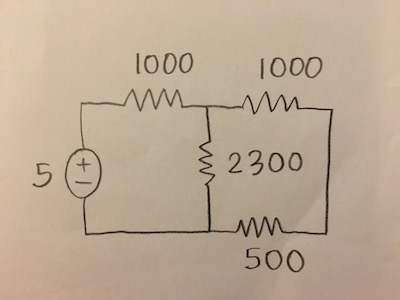 1000 1000
5 + − 2300
500